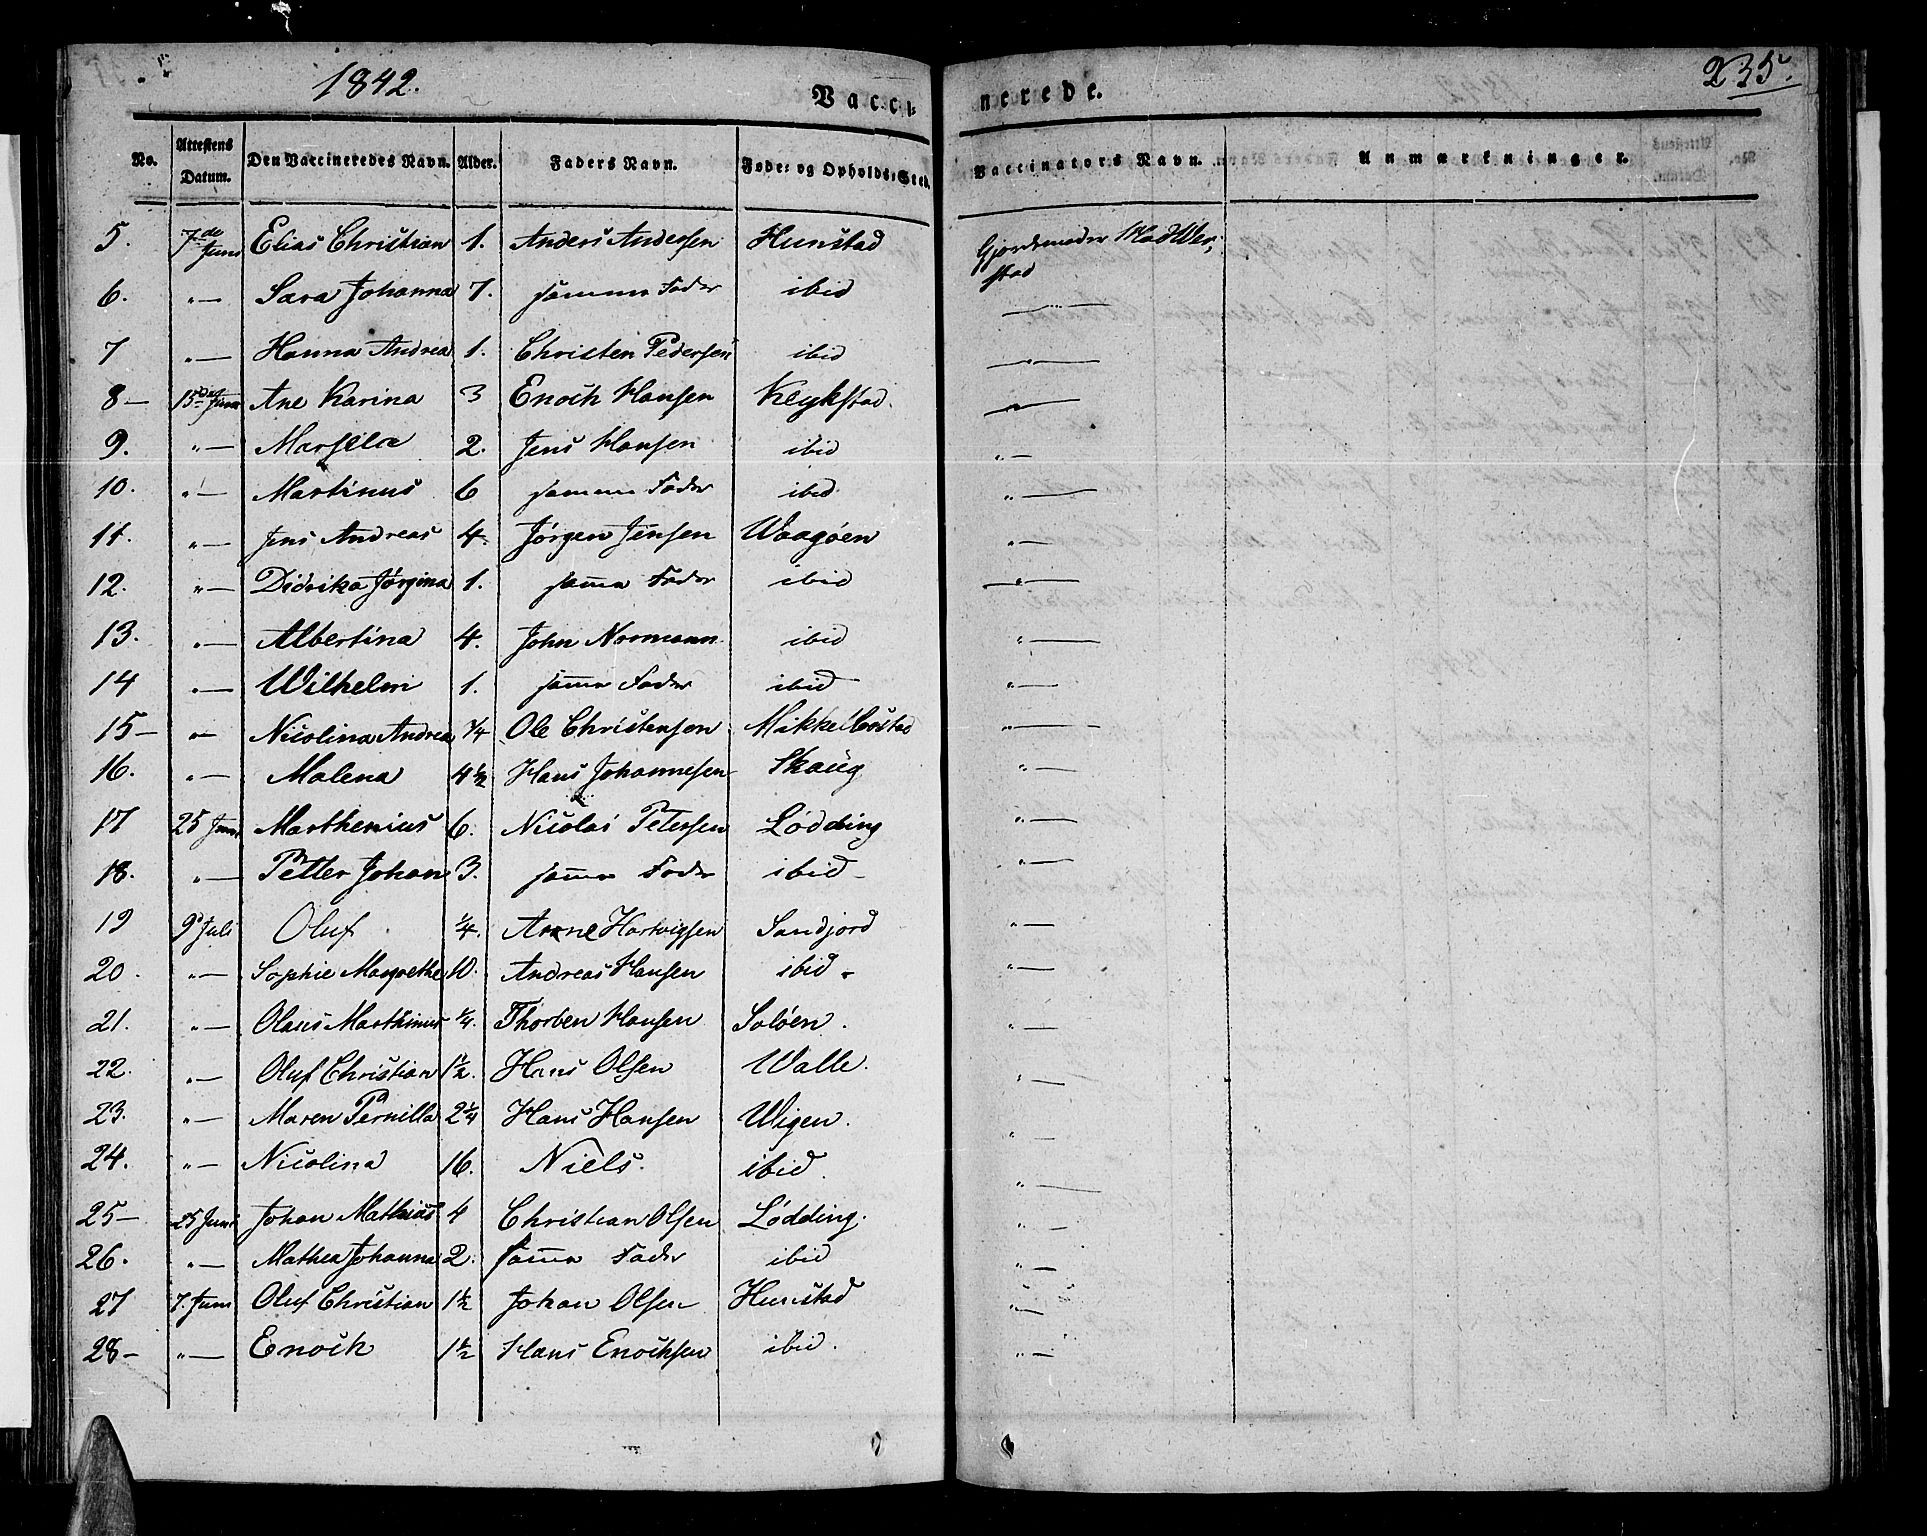 1842.
Vacci
nerede.
235.
No. Attestens Datum. Den Vaccineredes Navn. Alder. Faders Navn. Føde- og Opholds-Sted. Vaccinators Navn. Anmærkninger.
5. 7de Juni Elias Christian 1. Anders Andersen Hunstad Gjordemoder
stad
6. " — Sara Johanna 7. samme Fader ibid — " —
7 " — Hanna Andrea 1. Christen Pedersen ibid — " —
8 — 15de Juni Ane Karina 3 Enoch Hansen Klykstad. — " —
9. " — Marselia 2. Jens Hansen ibid " —
10. " — Martinus 6 samme Fader ibid. " —
11. " — Jens Andreas 4. Jørgen Jensen Waagøen " —
12. " — Didrika Jørgina 1. samme Fader ibid — " —
13. " — Albertina 4. John Normann ibid " —
14 " — Wilhelm 1. samme Fader ibid " —
15 — " — Nicolina Andrea 1/4 Ole Christensen Mikkelbostad " —
16. " — Malena 4 1/2 Hans Johannesen Skaug " —
17 25 Juni Marthenius 6. Nicolai Petersen Lødding " —
18. " — Petter Johan 3. samme Fader ibid — " —
19 9d Juli Oluf 1/4. Arne Hartvigsen Sandjord " —
20. " — Sophie Margrethe 10. Andreas Hansen ibid. " —
21. " — Olaus Marthinus 1/4. Thorben Hansen Soløen. " —
22. " — Oluf Christian 1 1/2. Hans Olsen Walle. " —
23. " — Maren Pernilla 2 1/4 Hans Hansen Wigen. " —
24. " — Nicolina 16. Niels. ibid. " —
25 — 25 Juni Johan Mathias 4 Christian Olsen Lødding. " —
26. " — Mathea Johanna 2. samme Fader ibid " —
27 7. Juni Oluf Christian 1 1/2 Johan Olsen Hunstad " —
28 — " — Enock 1 1/2 Hans Enochsen ibid. " —